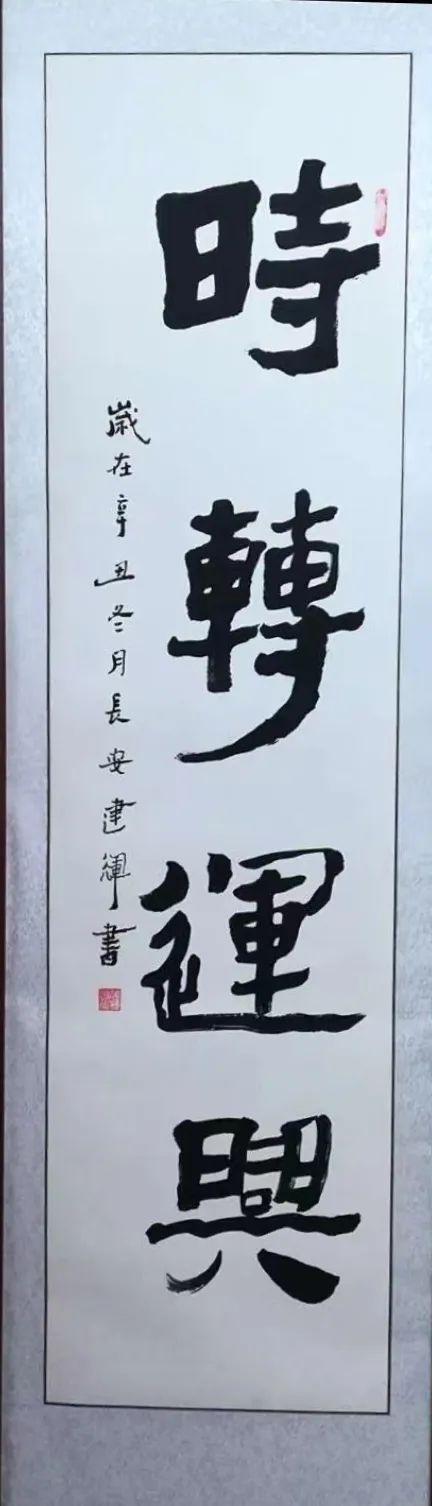 時轉運興
歲在辛丑冬月長安建輝書